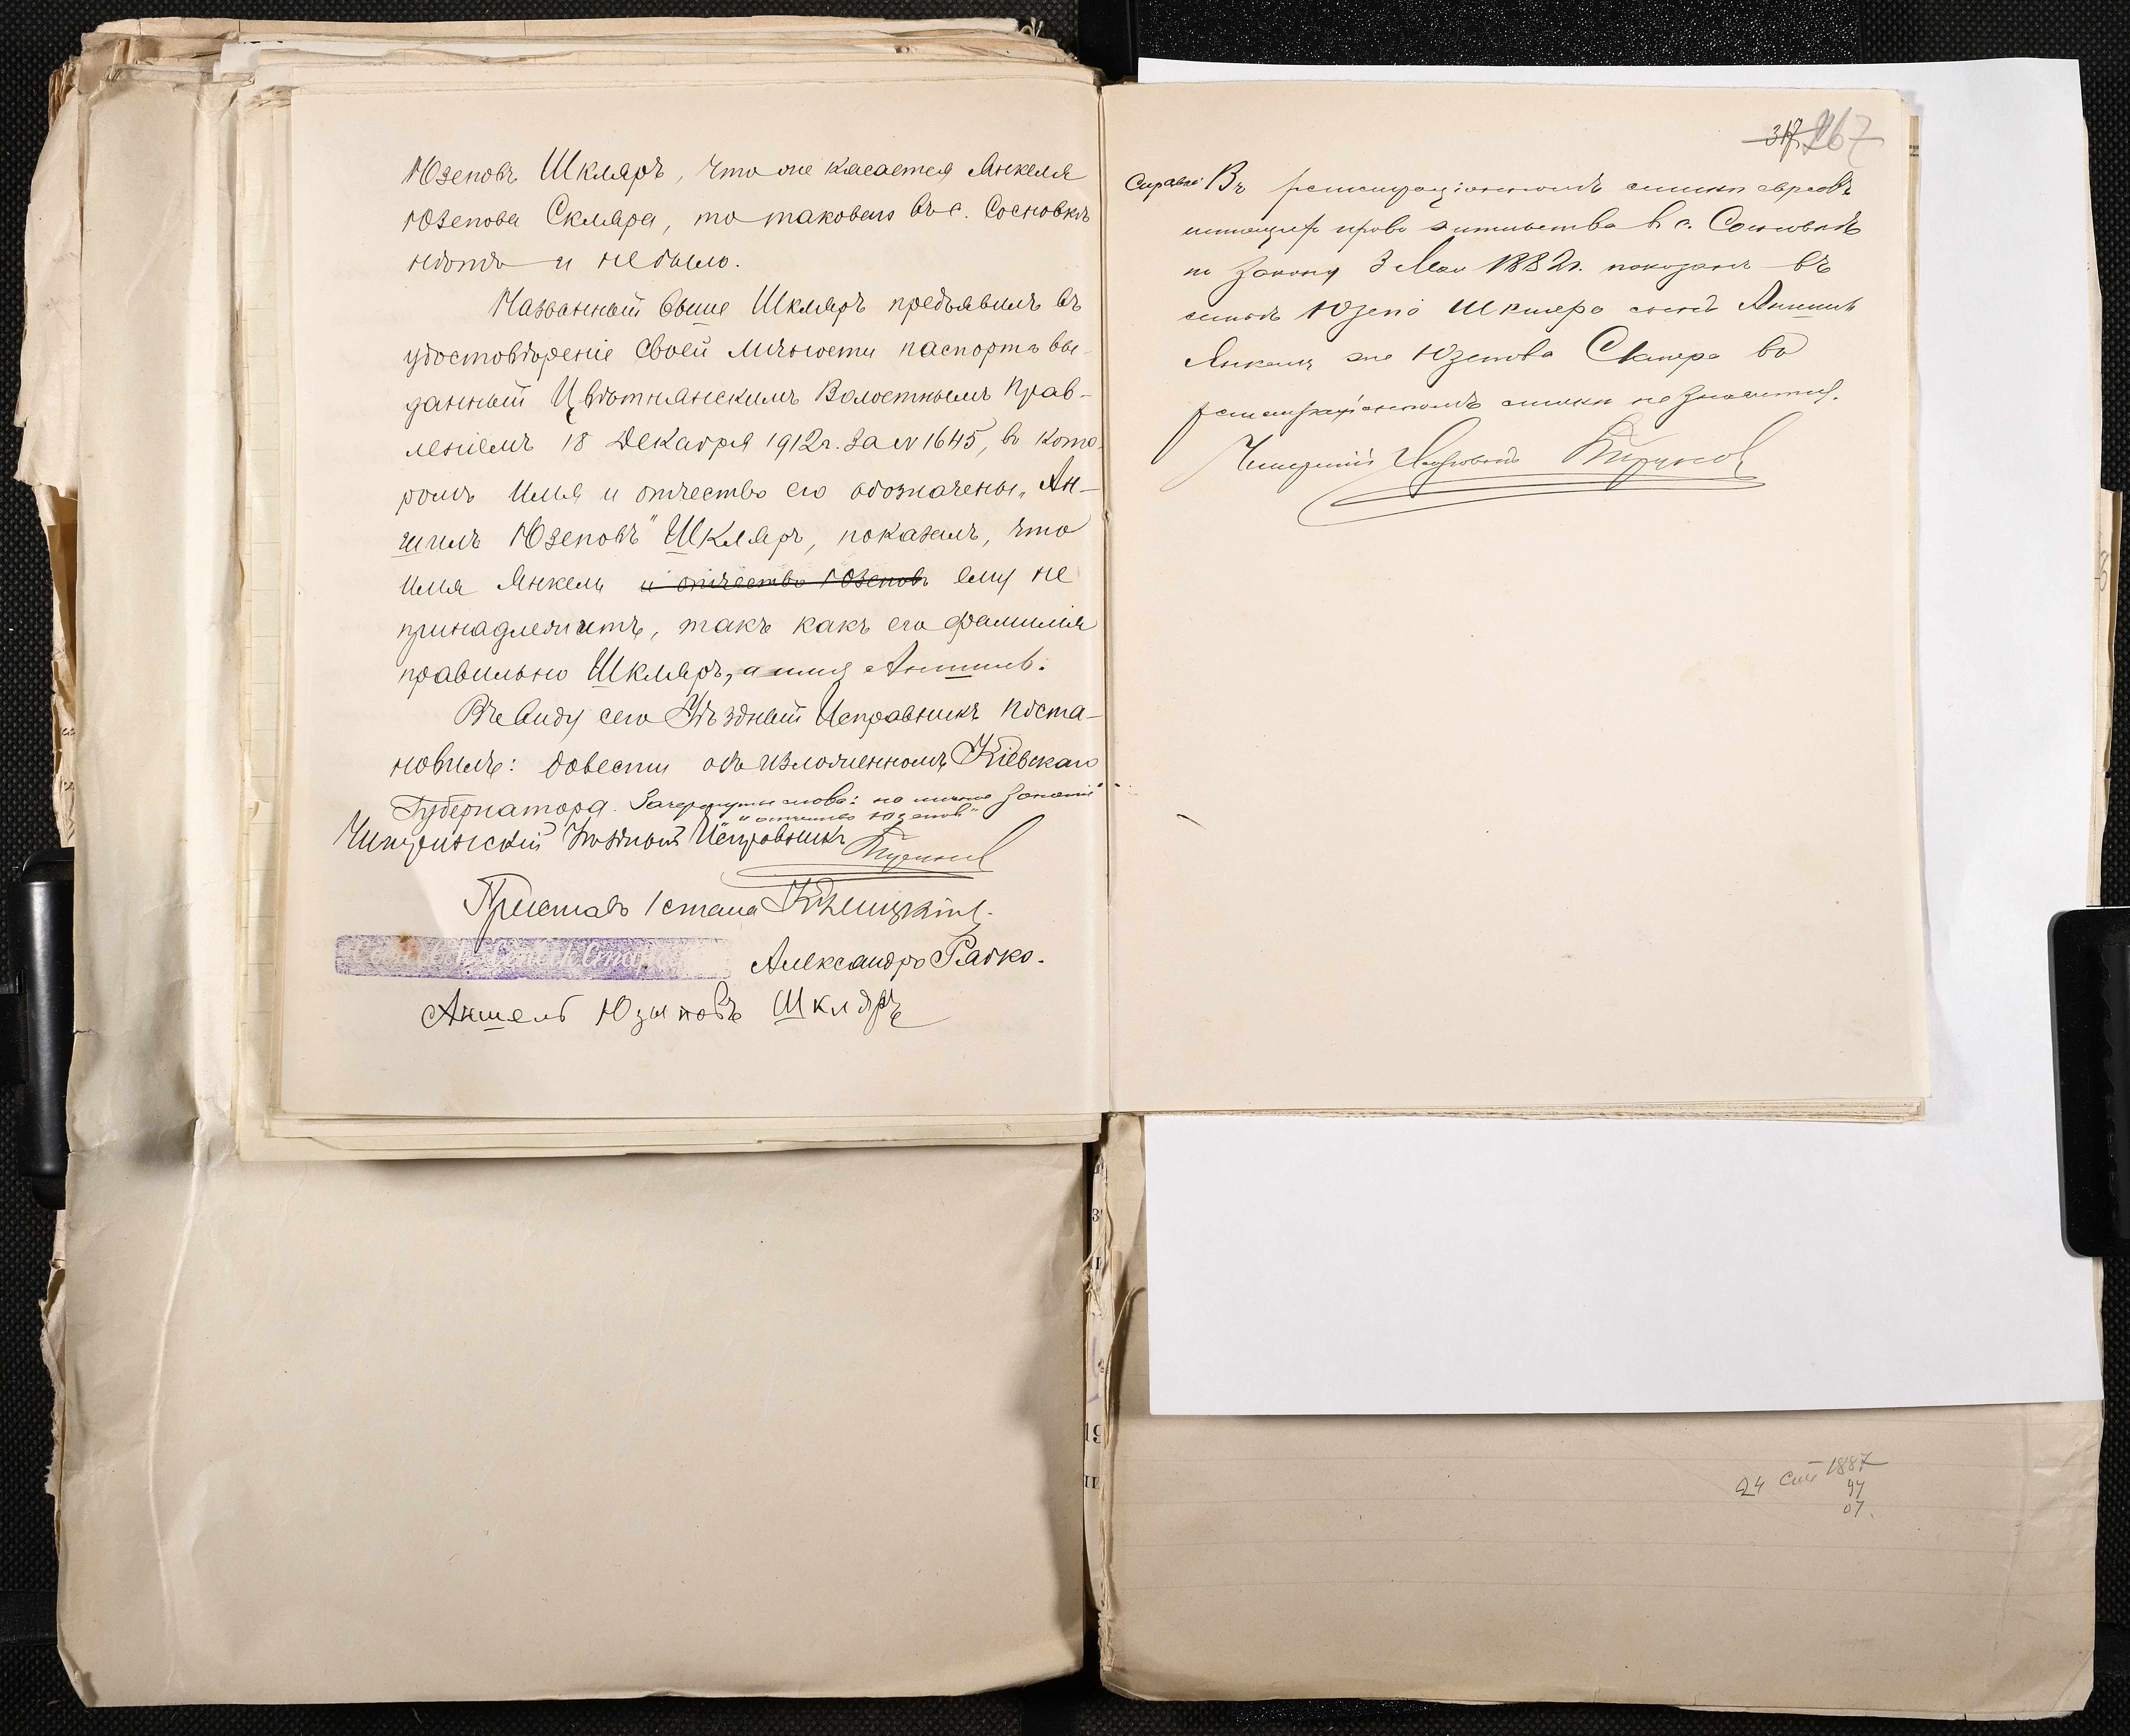 Юзеповъ Шкляръ, что же касается Янкеля
Юзепова Скляра, то таковаго въ с. Сосновкѣ
нѣтъ и не было.
Названный выше Шкляръ предъявилъ въ
удостовѣреніе своей личности паспортъ вы-
данный Цвѣтнянскимъ Волостнымъ Прав-
леніемъ 18 Декабря 1912 г. за № 1645, въ кото-
ромъ имя и отчество его обозначены „Ан-
шилъ Юзеповъ" Шкляръ, показалъ, что
имя Янкель и отчество Юзеповъ ему не
принадлежитъ, такъ какъ его фамилія
правильно Шкляръ, а имя Аншиль.
Въ виду сего Уѣздный Исправникъ поста-
новилъ: довести объ изложенномъ Кіевскаго
Губернатора. Зачеркнуты слова:
"и отчество Юзеповъ"
Чигиринскій Уѣздный Исправникъ
Приставъ 1 стана
Александръ Рабко.
Аншель Юзыповъ Шкляръ
317 267
Справка: Въ регистраціонномъ списки евреевъ
имѣющихъ право жительства въ с. Сосновкѣ
по закону 3 Мая 1882 г. показанъ въ
семьѣ Юзепа Шкляра сынъ Аншиль
Янкель же Юзепова Скляра въ
регистраціонномъ списки не значится.
Чигиринскій Исправникъ
24 1887
97
07.